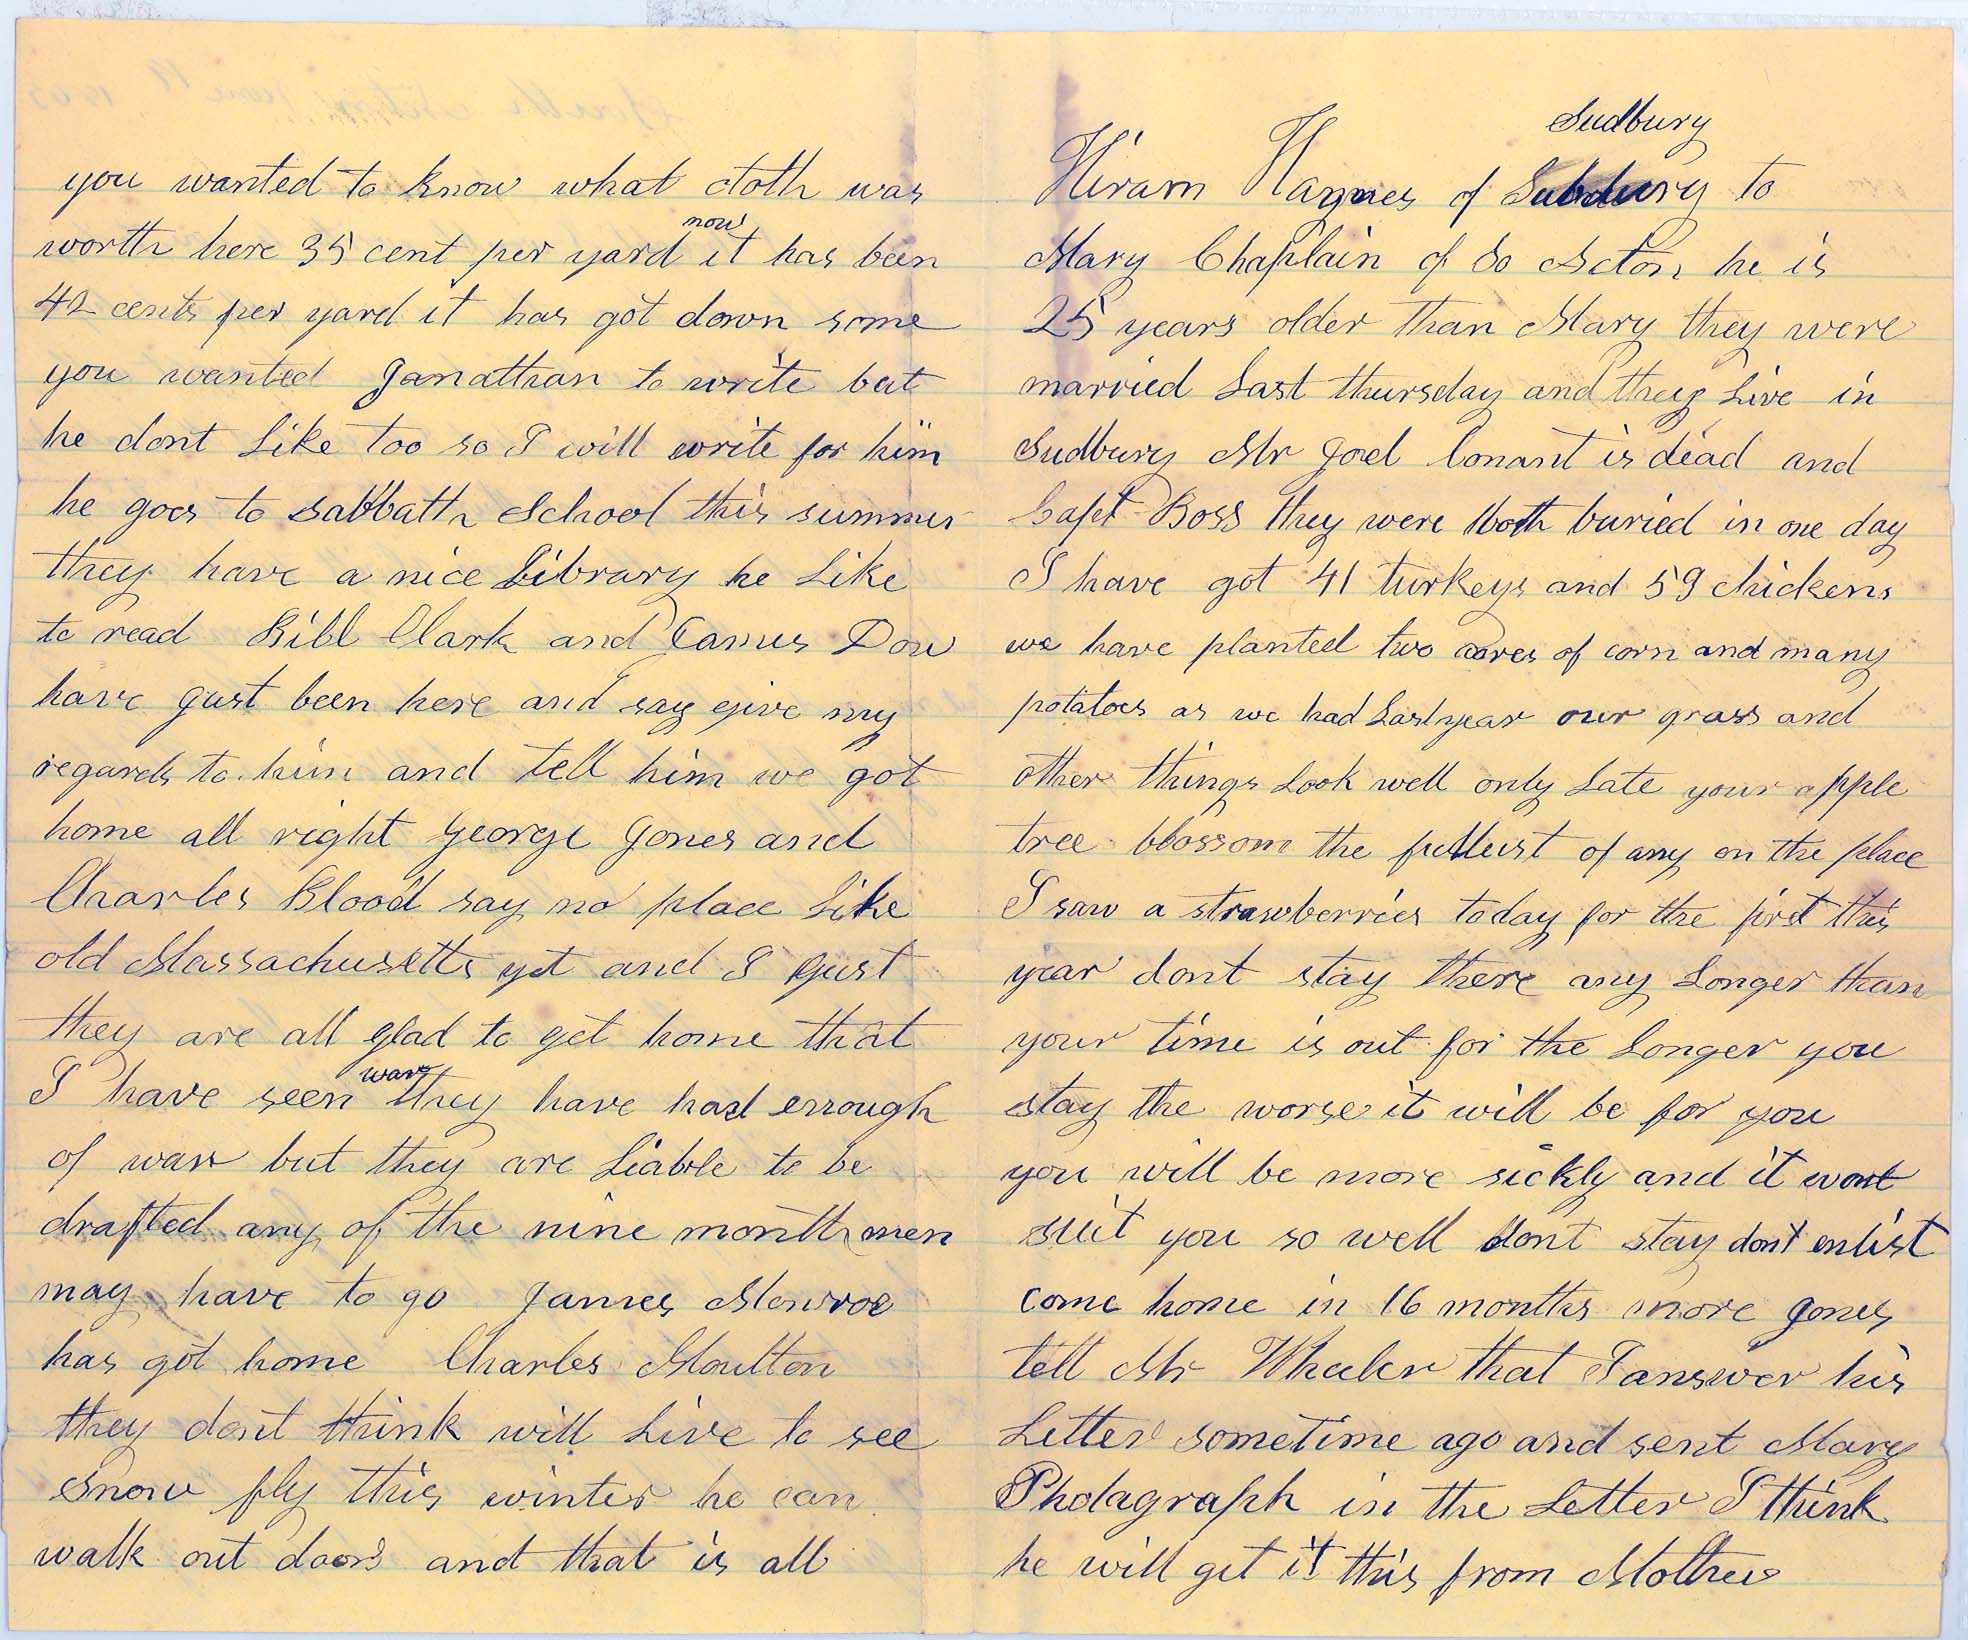 you wanted to know what cloth was
worth here 35 cent per yard now it has been
42 cents per yard it has got down some
you wanted Janathan to write but
he dont Like too so I will write for him
he goes to Sabbath School this summer
they have a nice Library he Like
to read Bill Clark and James Dow
have just been here and say give my
regards to him and tell him we got
home all right George Jones and
Charles Blood say no place Like
old Massachusetts yet and I gust
they are all glad to get home that
I have seen they have had enough
of war but they are Liable to be
drafted any of the nine month men
may have to go James Monroe
has got home Charles Moulton
they dont think will Live to see
snow fly this winter he can
walk out doors and that is all
Sudbury
Hiram Haynes of to
Mary Chaplain of So Acton he is
25 years older than Mary they were
married Last thursday and they Live in
Sudbury Mr Joel Conant is dead and
Capt Boss they were both buried in one day
I have got 41 turkeys and 59 chickens
we have planted two acres of corn and many
potatoes as we had Last year our grass and
other things Look well only Late your apple
tree blossom the fullest of any on the place
I saw a strawberries today for the first this
year dont stay there any Longer than
your time is out for the Longer you
stay the worse it will be for you
you will be more sickly and it wont
suit you so well dont stay dont enlist
come home in 16 months more Jones
tell Mr Wheeler that I answer his
Letter sometime ago and sent Mary
Photagraph in the Letter I think
he will get it this from Mother